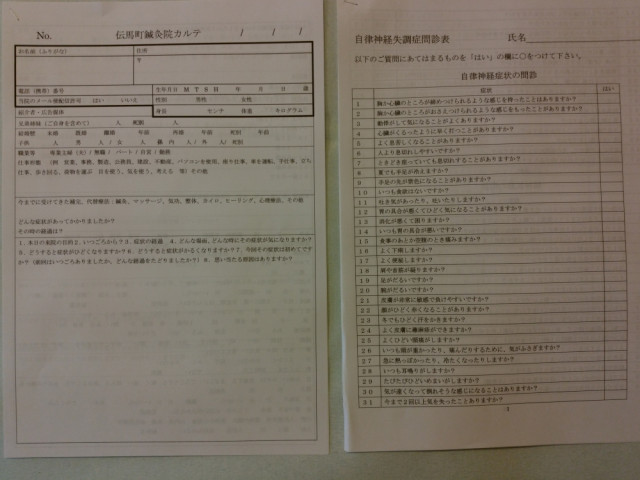 No.
伝馬町鍼灸院カルテ / / /
お名前（ふりがな）
住所
〒
電話（携帯）番号
生年月日 M T S H 年 月 日 歳
当院のメール情配信許可 はい いいえ
性別 男性 女性
紹介者・広告媒体
身長 センチ 体重 キログラム
兄弟姉妹（ご自身を含めて） 人 死別 人
結婚歴 未婚 既婚 離婚 年前 再婚 年前 死別 年前
子供 人 男 人／ 女 人
職業等 専業主婦（夫）／無職／パート／自営／勤務
今までに受けてきた療法、代替療法：鍼灸、マッサージ、気功、整体、カイロ、ヒーリング、心理療法、その他
どんな症状があってかかりましたか？
その時の経過は？
自律神経失調症問診表 氏名
以下のご質問にあてはまるものを「はい」の欄に○をつけて下さい。
自律神経症状の問診
症状 はい
1 胸か心臓のところが締めつけられるような感じを持ったことはありますか？
2 胸か心臓のところがおさえつけられるような感じをもったことがありますか？
3 動悸がして気になることがよくありますか？
4 心臓がくるったように早く打つことがありますか？
5 よく息苦しくなることがありますか？
6 人より息切れしやすいですか？
7 ときどき座っていても息切れすることがありますか？
8 夏でも手足が冷えますか？
9 手足の先が紫色になることがありますか？
10 いつも食欲はないですか？
11 吐き気があったり、吐いたりしますか？
12 胃の具合が悪くてひどく気になることがありますか？
13 消化が悪くて困りますか？
14 いつも胃の具合が悪いですか？
15 食事のあとか空腹のとき痛みますか？
16 よく下痢しますか？
17 よく便秘しますか？
18 肩や首筋が凝りますか？
19 足がだるいですか？
20 腕がだるいですか？
21 皮膚が非常に敏感で負けやすいですか？
22 顔がひどく赤くなることがありますか？
23 冬でもひどく汗をかきますか？
24 よく皮膚に蕁麻疹ができますか？
25 よくひどい頭痛がしますか？
26 いつも頭が重かったり、痛んだりするために、気がふさぎますか？
27 急に熱っぽかったり、冷たくなったりしますか？
28 いつも耳鳴りがしますか？
29 たびたびひどいめまいがしますか？
30 気が遠くなって倒れそうな感じになることはありますか？
31 今まで2回以上気を失ったことありますか？